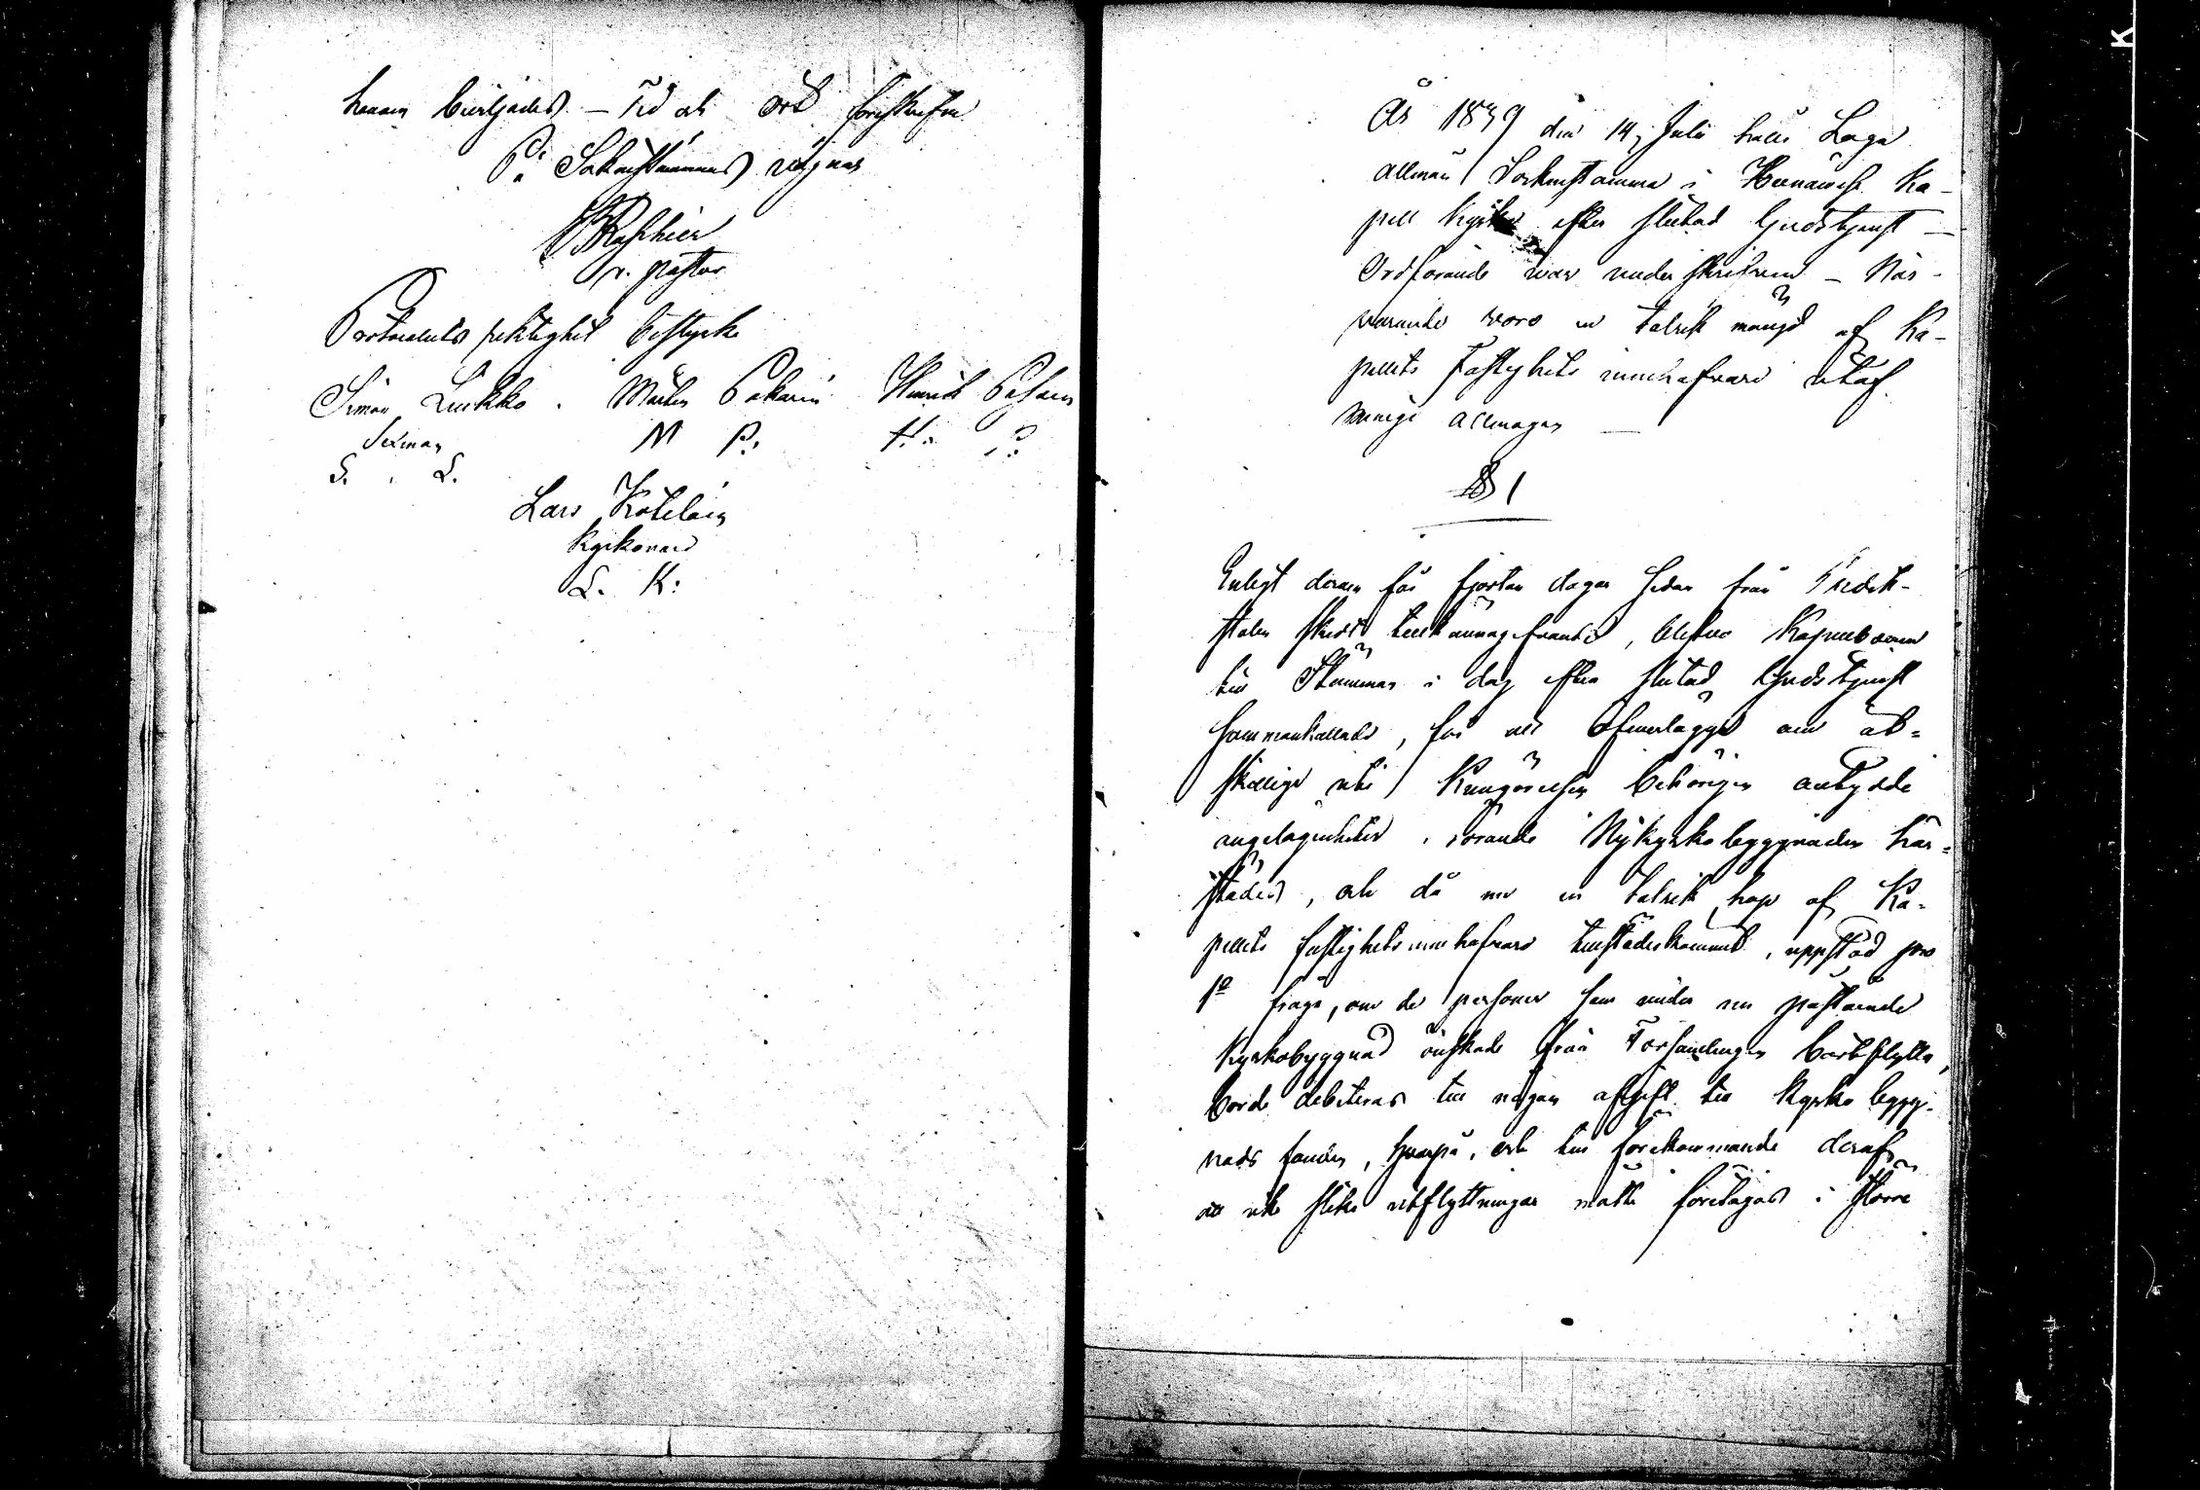 honom beviljades. – Tid och ort föreskrefne
På Sockenstämmans vägnar
v. pastor
Protocollets riktighet bestyrka
Simon Luikko. Mårten Pakarin Henrik
Sexman M P: H:
S. L.
Lars Köteläin
kyrkovärd
L. K:
År 1839 den 14 Julii hölls Laga
allmän Sockenstämma i Ka-
pell kyrka efter slutad Gudstjenst –
Ordförande war underskrifven – När-
varande voro en talrik mängd af Ka-
pellets Fastighets innehafvare utaf
menige allmogen –
§ 1
Enligt derom för fjorton dagar sedan från Predik-
stolen skedt tillkännagifvande, blefvo Kapellboerne
till Stämman i dag efter slutad Gudstjenst
sammankallade, för att öfverlägga om åt-
skillige uti Kungörelsen behörigen antydde
angelägenheter, rörande Nykyrkobyggnaden här-
städes, och då nu en talrik hop af Ka-
pellets fastighetsinnehafvare tillstädeskommit, uppstod pro
1º fråga, om de personer som under nu påstående
Kyrkobyggnad önskade från Församlingen bortflytta,
borde debiteras till någon afgift till Kyrkobygg-
nads fonden, hvarpå, och till förekommande deraf
att icke slike utflyttningar måtte företagas i större